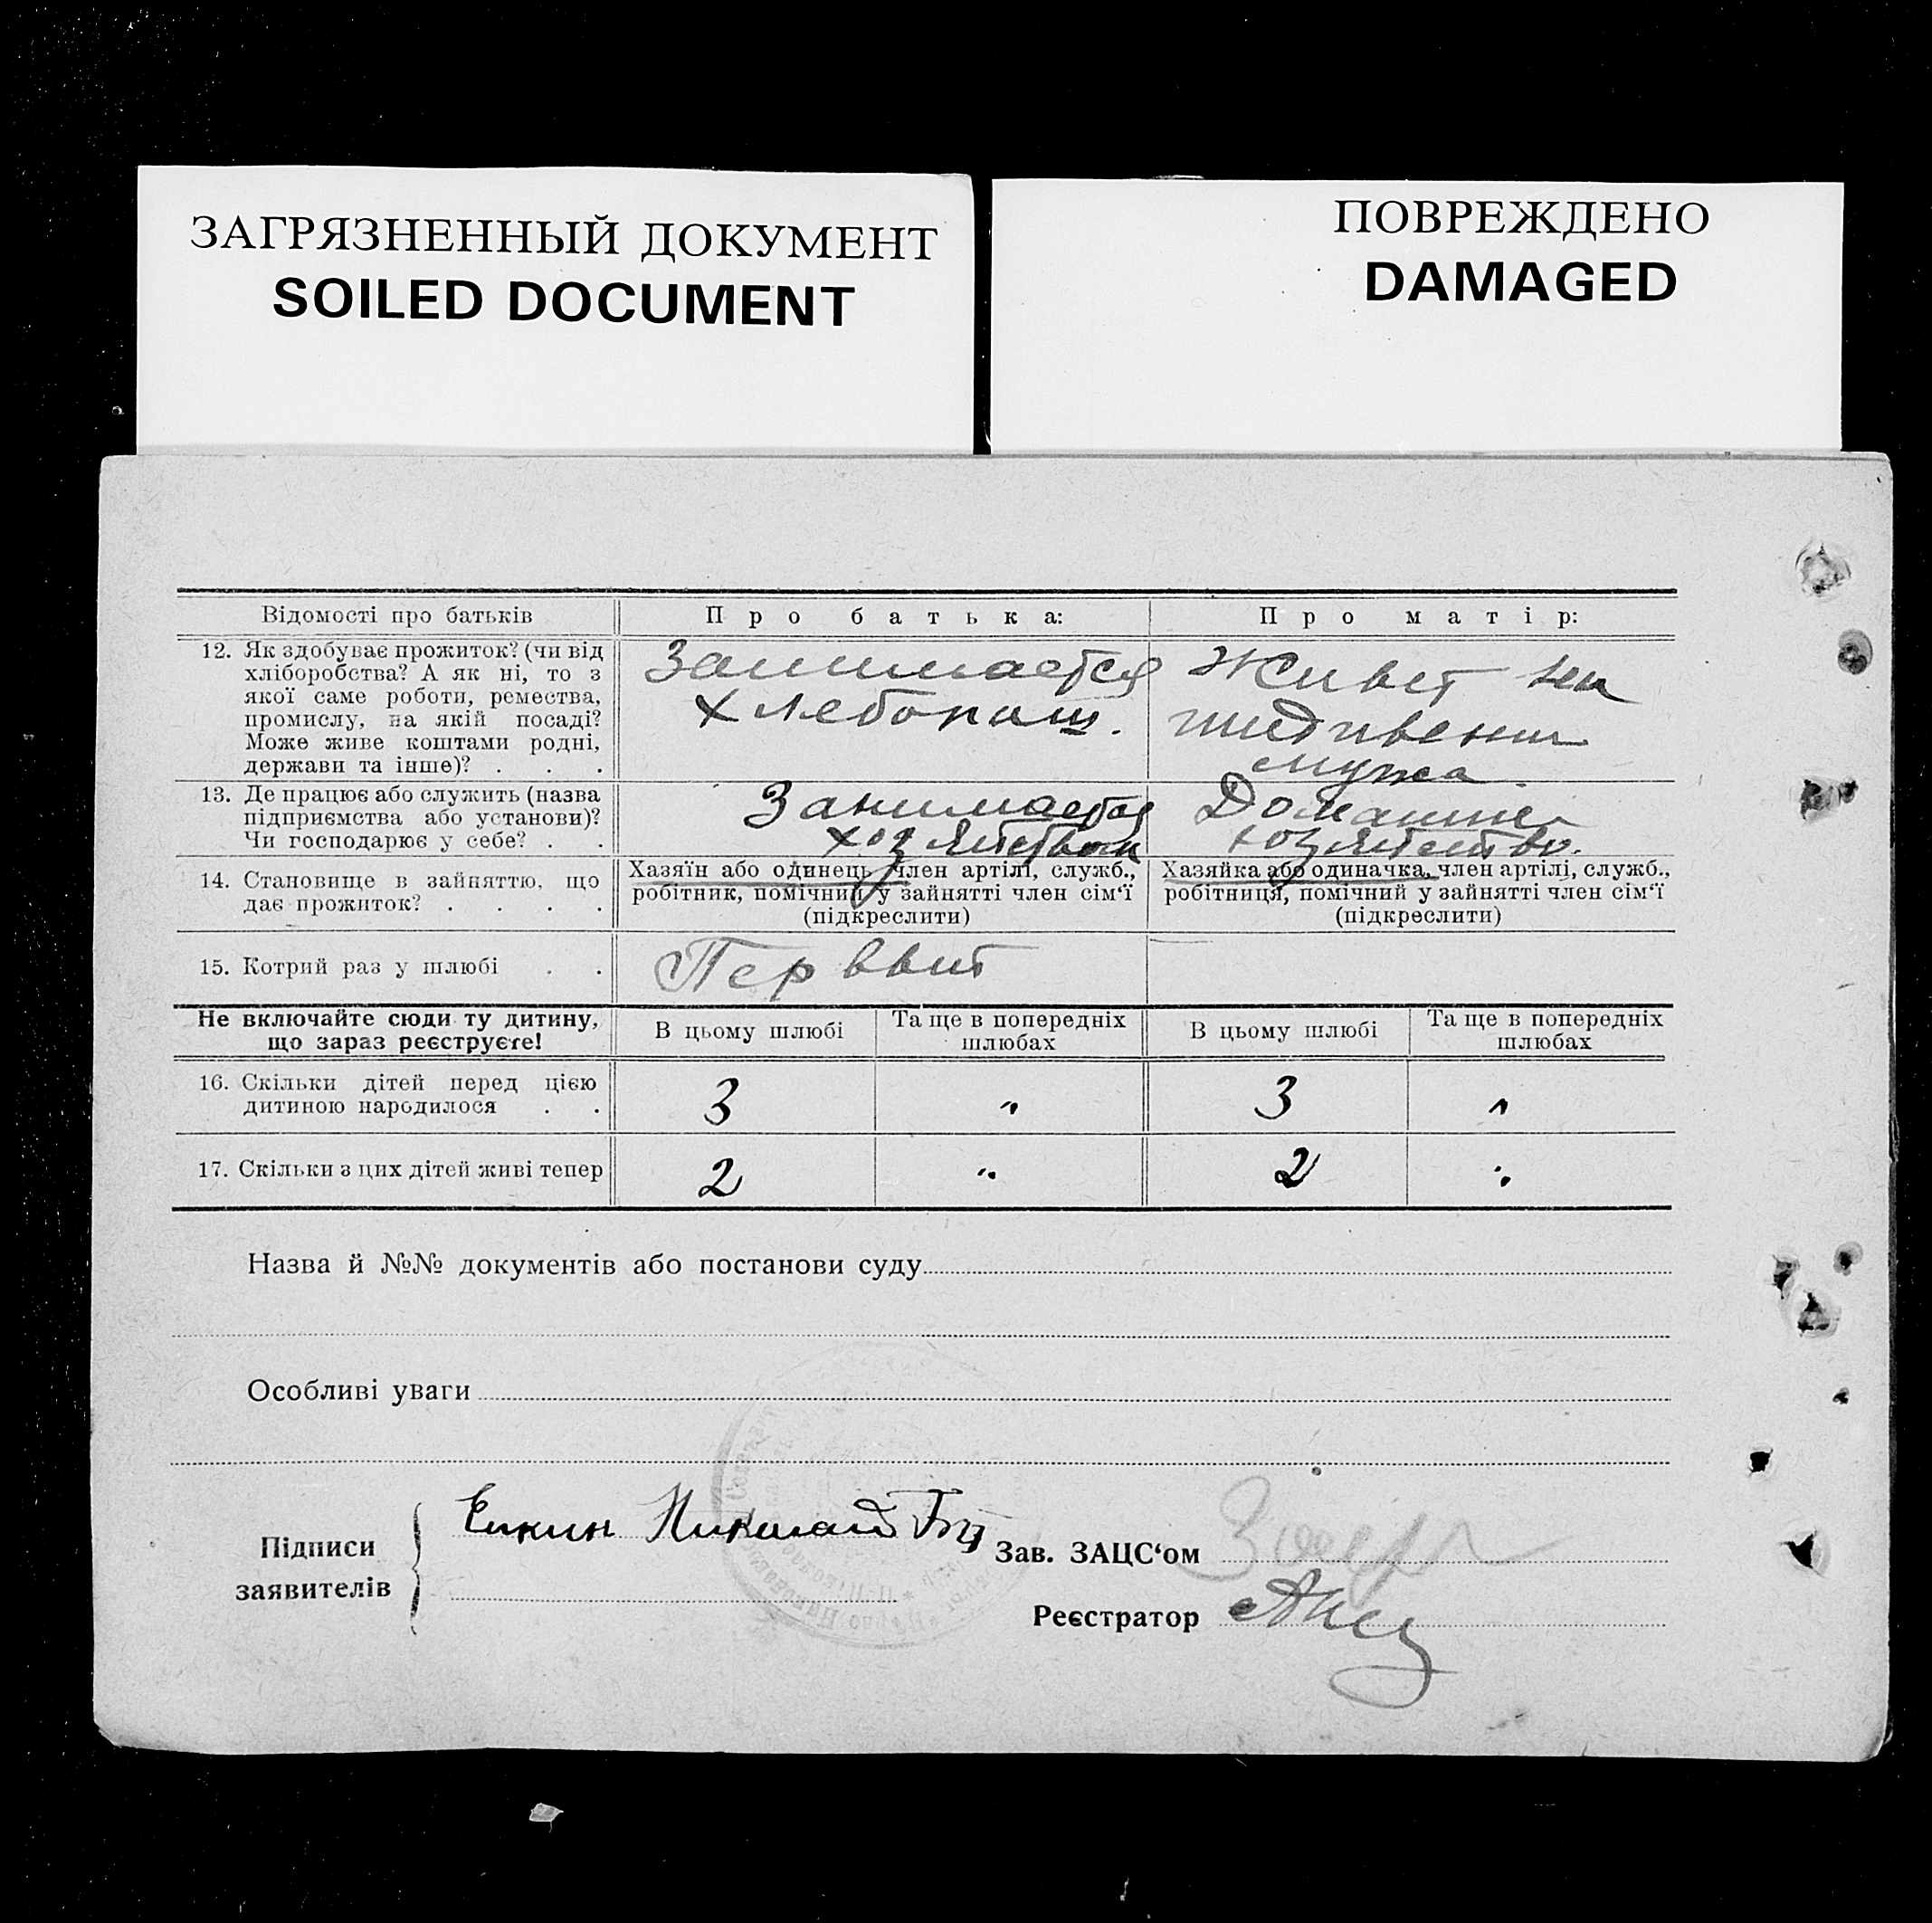 ЗАГРЯЗНЕННЫЙ ДОКУМЕНТ
SOILED DOCUMENT
ПОВРЕЖДЕНО
DAMAGED
Відомості про батьків
Про батька:
Про матір:
12. Як здобуває прожиток? (чи від
хліборобства? А як ні, то з
якої саме роботи, ремества,
промислу, на якій посаді?
Може живе коштами родні,
держави та інше)? . . .
Занимается
хлебопаш.
Живет на
иждивении
мужа
13. Де працює або служить (назва
підприємства або установи)?
Чи господарює у себе? . .
Занимается
хозяйством
Домашнее
хозяйство.
14. Становище в зайняттю, що
дає прожиток? . . . .
Хазяїн або одинець, член артілі, служб.,
робітник, помічний у зайнятті член сім‘ї
(підкреслити)
Хазяйка або одиначка, член артілі, служб.,
робітниця, помічний у зайнятті член сім‘ї
(підкреслити)
15. Котрий раз у шлюбі . .
Не включайте сюди ту дитину,
що зараз реєструєте!
В цьому шлюбі
Та ще в попередніх
шлюбах
В цьому шлюбі
Та ще в попередніх
шлюбах
16. Скільки дітей перед цією
дитиною народилося . .
3
"
3
"
17. Скільки з цих дітей живі тепер
2
"
2
"
Назва й №№ документів або постанови суду
Особливі уваги
Підписи
заявителів
Зав. ЗАЦС‘ом
Реєстратор